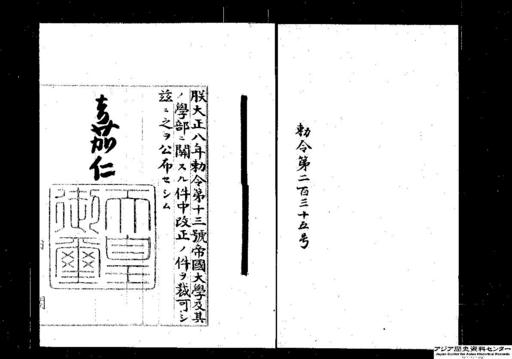 勅令第二百三十五号
朕大正八年勅令第十三號帝國大學及其
ノ學部ニ關スル件中改正ノ件ヲ裁可シ
茲ニ之ヲ公布セシム
嘉仁
天皇
御璽
アジア歴史資料センター
Japan Center for Asian Historical Records